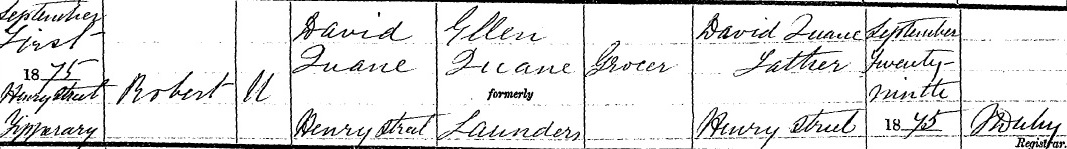 September
First
1875
Henry Street
Tipperary
Robert
M
David
Quane
Henry Street
Ellen
Quane
formerly
Saunders
Grocer
David Quane
Father
Henry Street
September
Twenty-
ninth
1875
Registrar.